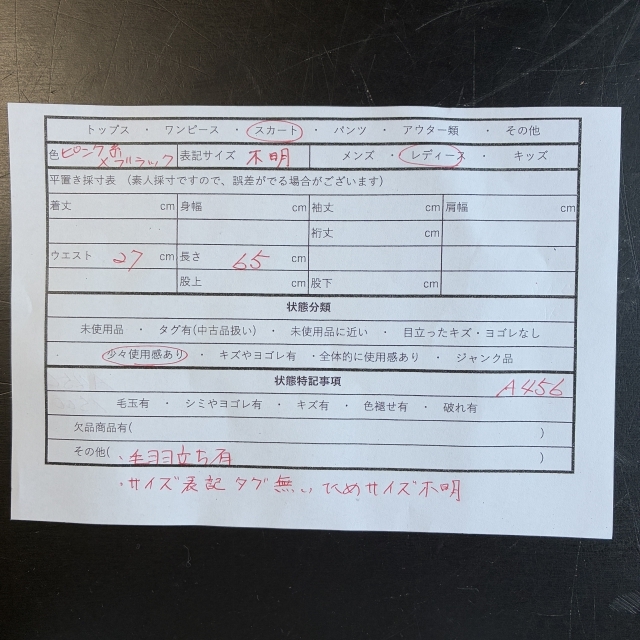 トップス ・ ワンピース ・ スカート ・ パンツ ・ アウター類 ・ その他
色 ピンク系×ブラック 表記サイズ 不明 メンズ ・ レディース ・ キッズ
平置き採寸表 (素人採寸ですので、誤差がでる場合がございます)
着丈 cm 身幅 cm 袖丈 cm 肩幅 cm
裄丈 cm
ウエスト 27 cm 長さ 65 cm
股上 cm 股下 cm
状態分類
未使用品 ・ タグ有(中古品扱い) ・ 未使用品に近い ・ 目立ったキズ・ヨゴレなし
・ 少々使用感あり ・ キズやヨゴレ有 ・全体的に使用感あり ・ ジャンク品
状態特記事項 A456
毛玉有 ・ シミやヨゴレ有 ・ キズ有 ・ 色褪せ有 ・ 破れ有
欠品商品有( )
その他( ・毛羽立ち有 )
・サイズ表記タグ無い為サイズ不明